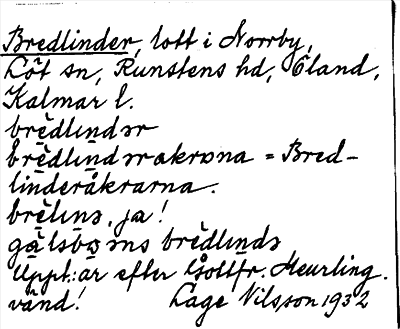 Bredlinder, tott i Norrby,
Löt sn, Runstens hd, Öland,
Kalmar l.
brēdlındər
brēdlındərakrɒna = Bred-
linderåkrarna.
brēlınə, ja!
brēdlındə
Uppt. är efter Gottfr. Heurling.
vänd! Lage Nilsson 1932